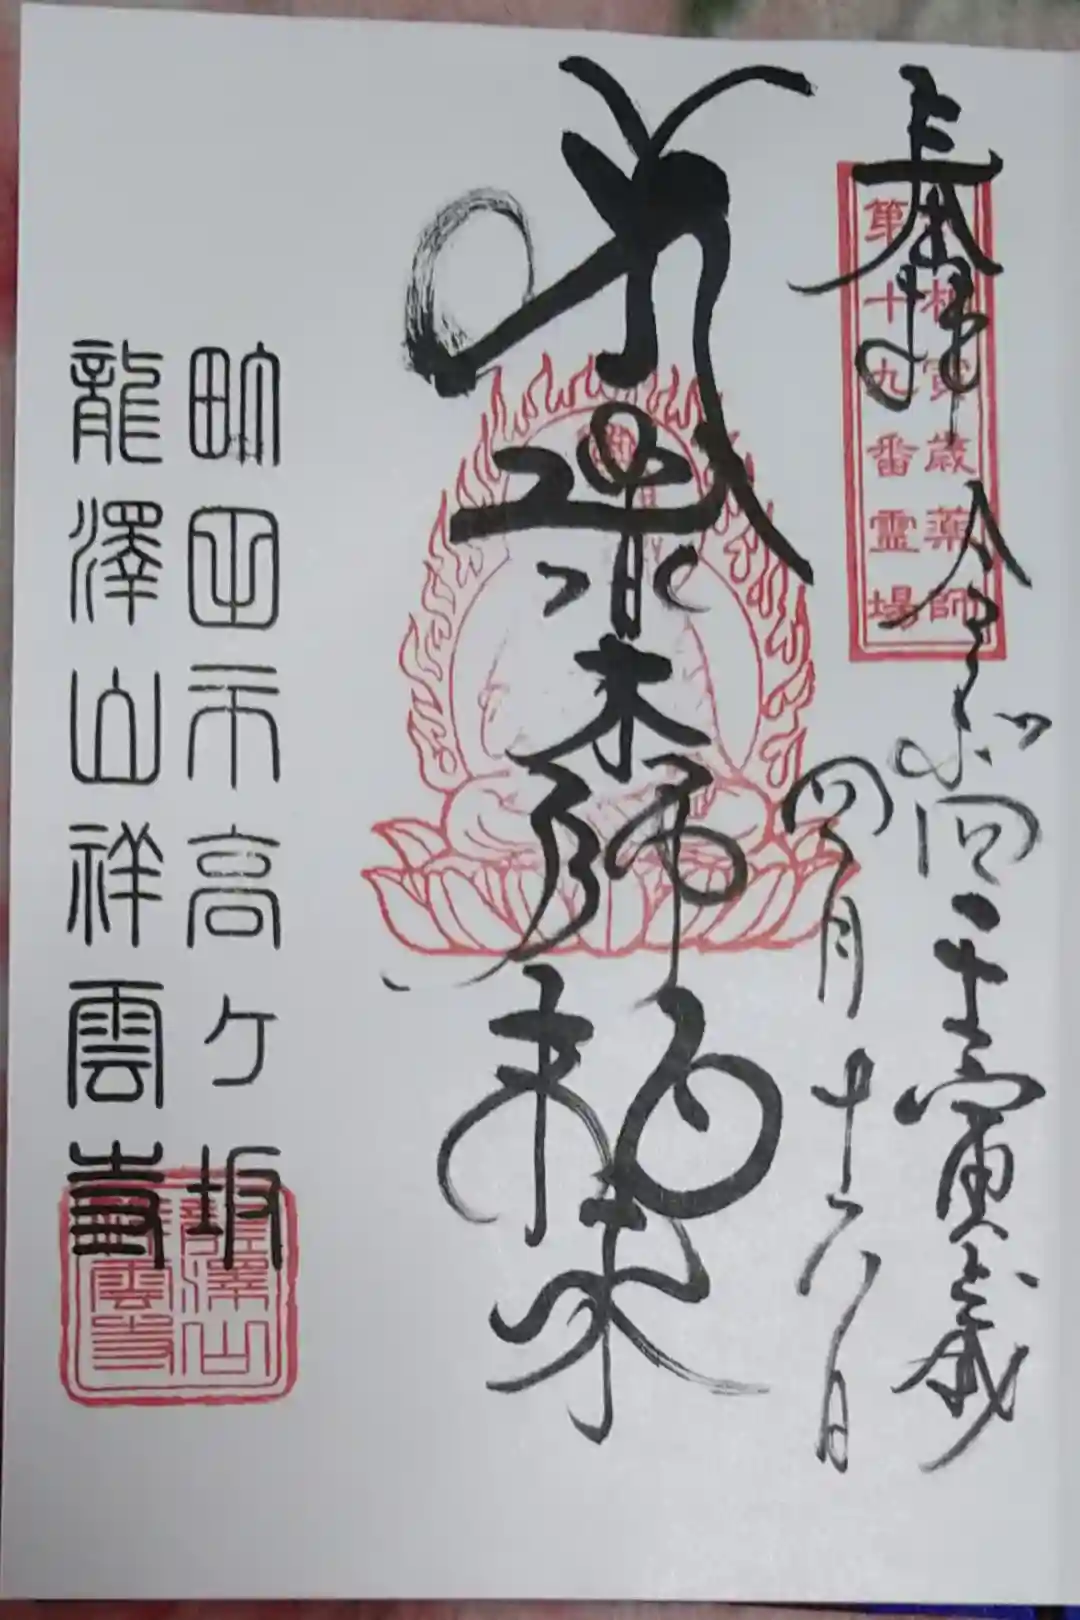 奉拝
令和四壬寅歳
四月十六日
武相寅歳薬師
第十九番霊場
薬師如来
町田市高ヶ坂
龍澤山祥雲寺
龍澤山
祥雲寺